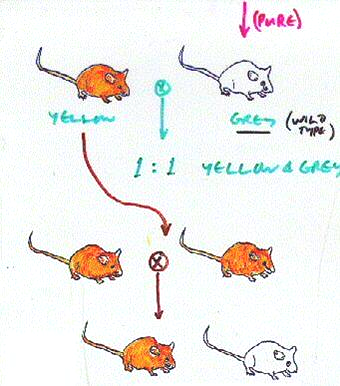 (PURE)
YELLOW
GREY (WILD TYPE)
1 : 1 YELLOW & GREY